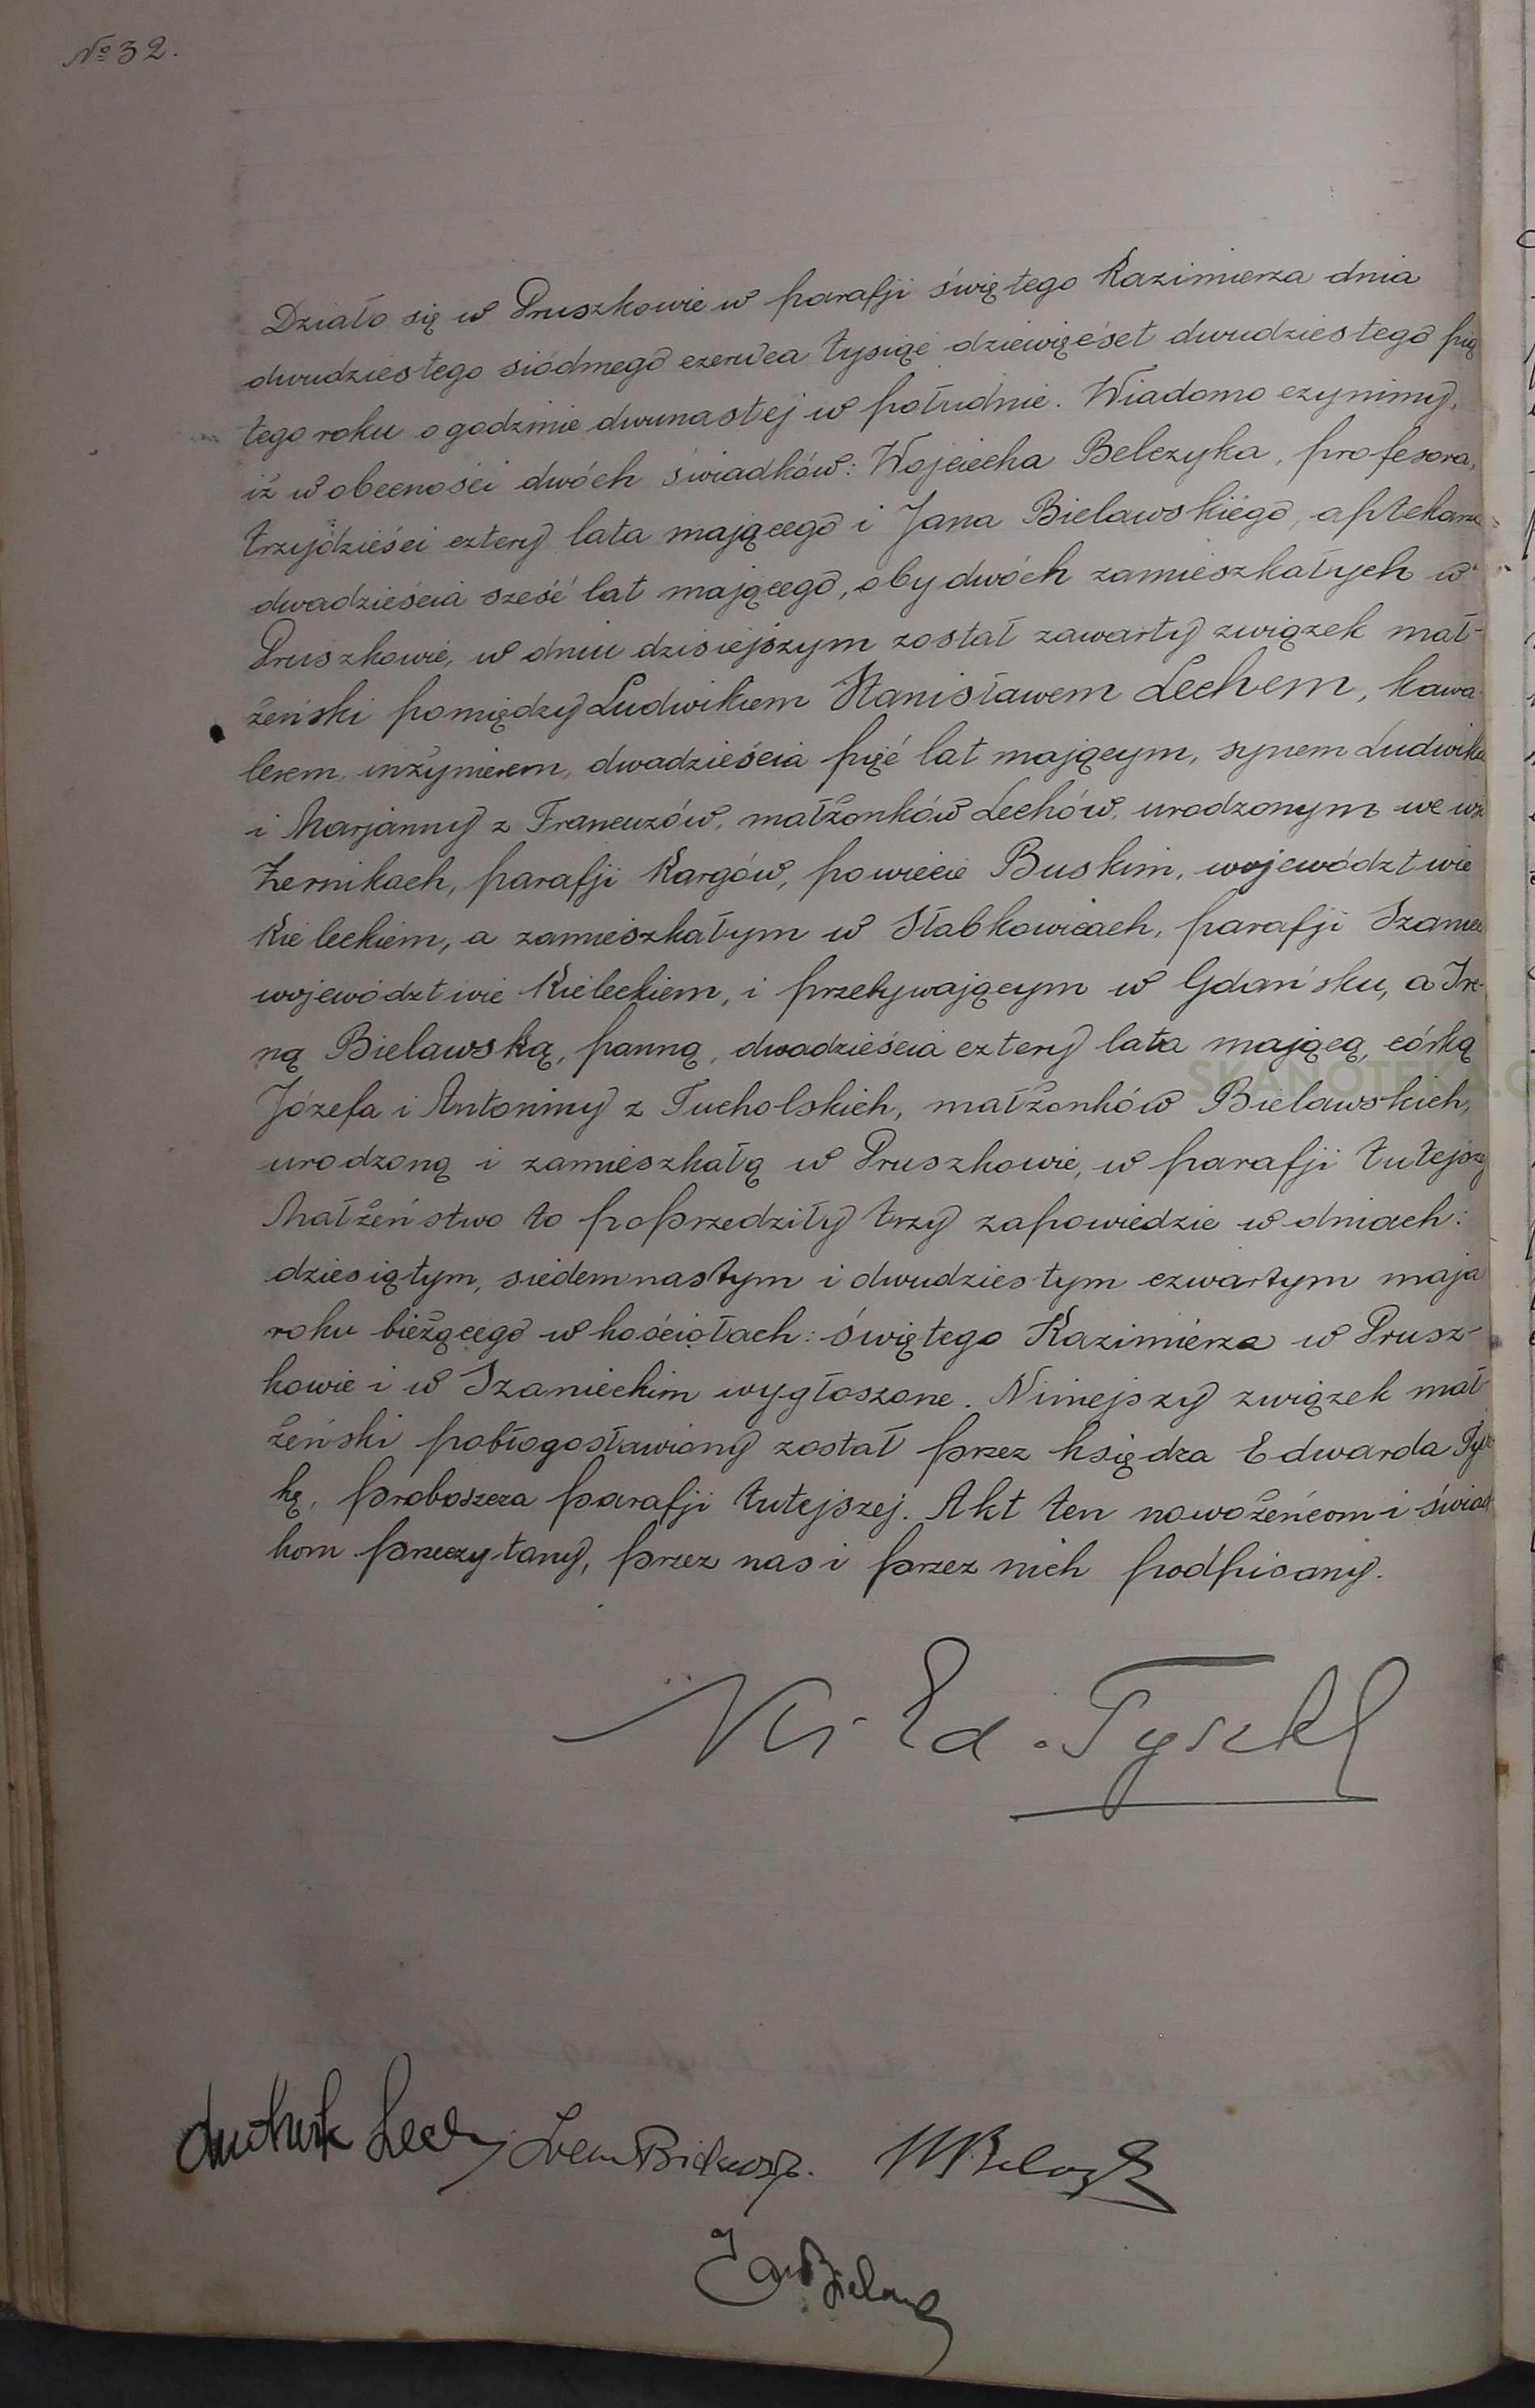 № 32.
Działo się w Pruszkowie w parafji świętego Kazimierza dnia
dwudziestego siódmego czerwca tysiąc dziewięćset dwudziestego pią
tego roku o godzinie dwunastej w południe. Wiadomo czynimy,
iż w obecności dwóch świadków: Wojciecha Belczyka, profesora,
trzydzieści cztery lata mającego i Jana Bielawskiego, aptekarza
dwadzieścia sześć lat mającego, obydwóch zamieszkałych w
Pruszkowie, w dniu dzisiejszym został zawarty związek mał-
żeński pomiędzy Ludwikiem Stanisławem Lechem, kawa
lerem, inżynierem, dwadzieścia pięć lat mającym, synem Ludwika
i Marjanny z Francuzów, małżonków Lechów, urodzonym we wsi
Żernikach, parafji Kargów, powiecie Buskim, województwie
Kieleckiem, a zamieszkałym w Słabkowicach, parafji Szaniec
województwie Kieleckiem, i przebywającym w Gdańsku, a Ire-
ną Bielawską, panną, dwadzieścia cztery lata mającą, córką
Józefa i Antoniny z Tucholskich, małżonków Bielawskich,
urodzoną i zamieszkałą w Pruszkowie, w parafji tutejszej
Małżeństwo to poprzedziły trzy zapowiedzie w dniach:
dziesiątym, siedemnastym i dwudziestym czwartym maja
roku bieżącego w kościołach: świętego Kazimierza w Prusz-
kowie i w Szanieckim wygłoszone. Niniejszy związek mał-
żeński pobłogosławiony został przez księdza Edwarda Tysz
kę, proboszcza parafji tutejszej. Akt ten nowożeńcom i świad
kom przeczytany, przez nas i przez nich podpisany.
Ks. Ed. Tyszka
Ludwik Lech Irena Bielawska. WBelczyk
Jan Bielawski
SKANOTEKA.